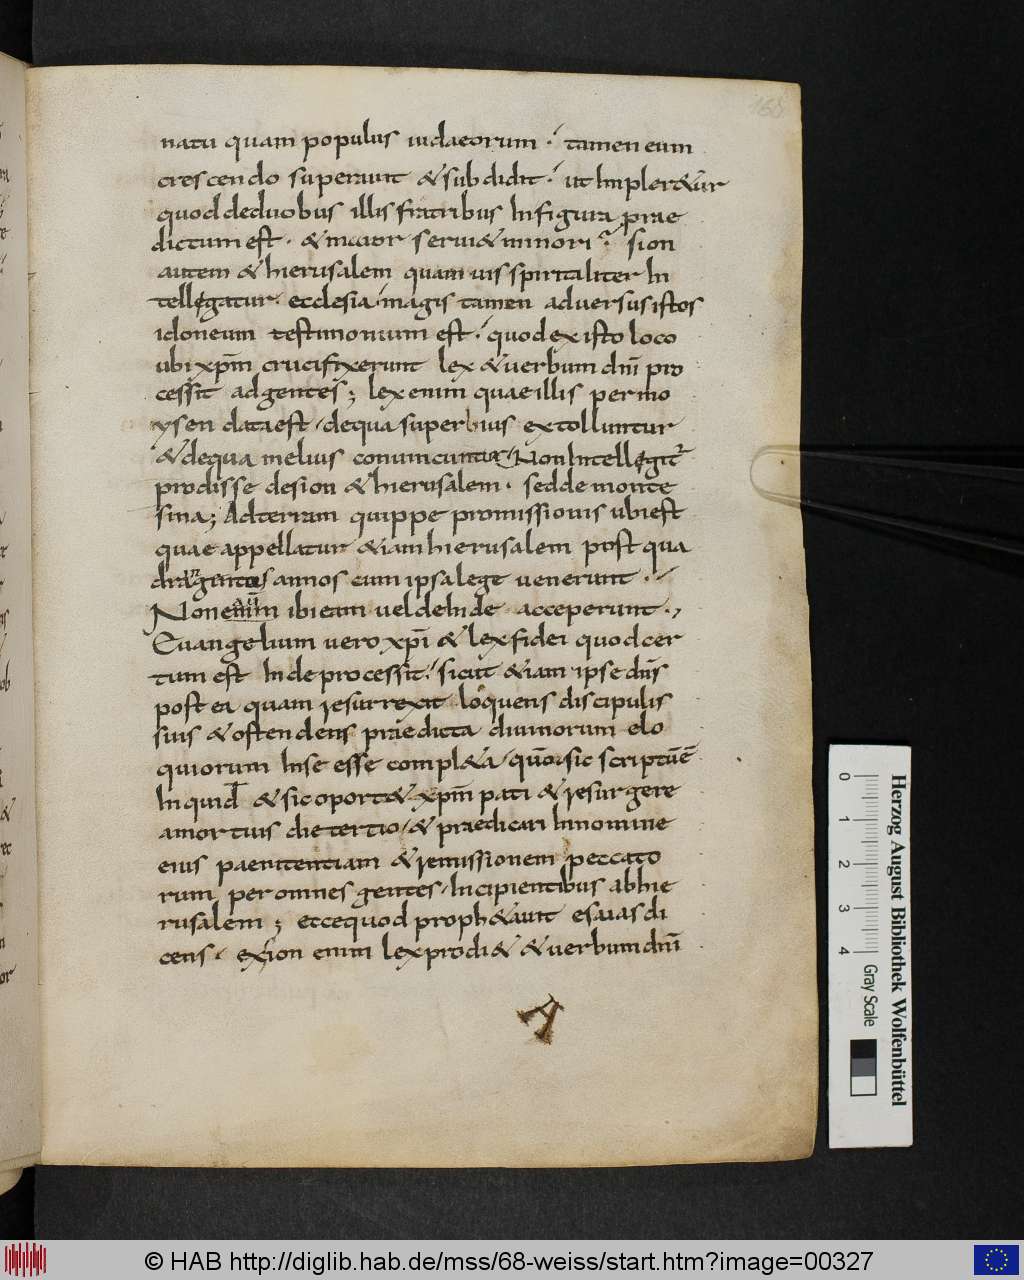 168
natu quam populus iudaeorum · tamen eum
crescendo superauit & subdidit · ut Impler&ur
quod deduobus illis fratribus Infigura prae
dictum est · & maior serui& minori · sion
autem & hierusalem quamuis spiritaliter In
tellegatur · ecclesia · magis tamen aduersus istos
idoneum testimonium est · quod ex isto loco
ubi xpm̄ crucifixerunt lex & uerbum dnī pro
cessit ad gentes; lex enim quae illis per mo
ysen data est · de qua superbius extolluntur
& dequa melius conuincuntur · Non Intellegitr
prodisse desion & hierusalem · sed de monte
sina; Ad terram quippe promissionis ubi est
quae appellatur &iam hierusalem post qua
dragentos annos cum ipsa lege uenerunt ·
Non enim ibi eam uel deInde acceperunt ·
Euangelium uero xpī & lex fidei quod cer
tum est Inde processit · sicut &iam ipse dn̄s
postea quam resurrexit loquens discipulis
suis & ostendens praedicta diuinorum elo
quiorum Inse esse compl&a · quō sic scriptū ē
Inquid & sic oport& xpm̄ pati & resurgere
amortuis die tertio · & praedicari Innomine
eius paenitentiam & remissionem peccato
rum per omnes gentes · Incipientibus abhie
rusalem; ecce quod proph&auit esaias di
cens · exsion enim lex prodi& & uerbum dnī
A
Herzog August Bibliothek Wolfenbüttel
0 1 2 3 4 Gray Scale
© HAB http://diglib.hab.de/mss/68-weiss/start.htm?image=00327